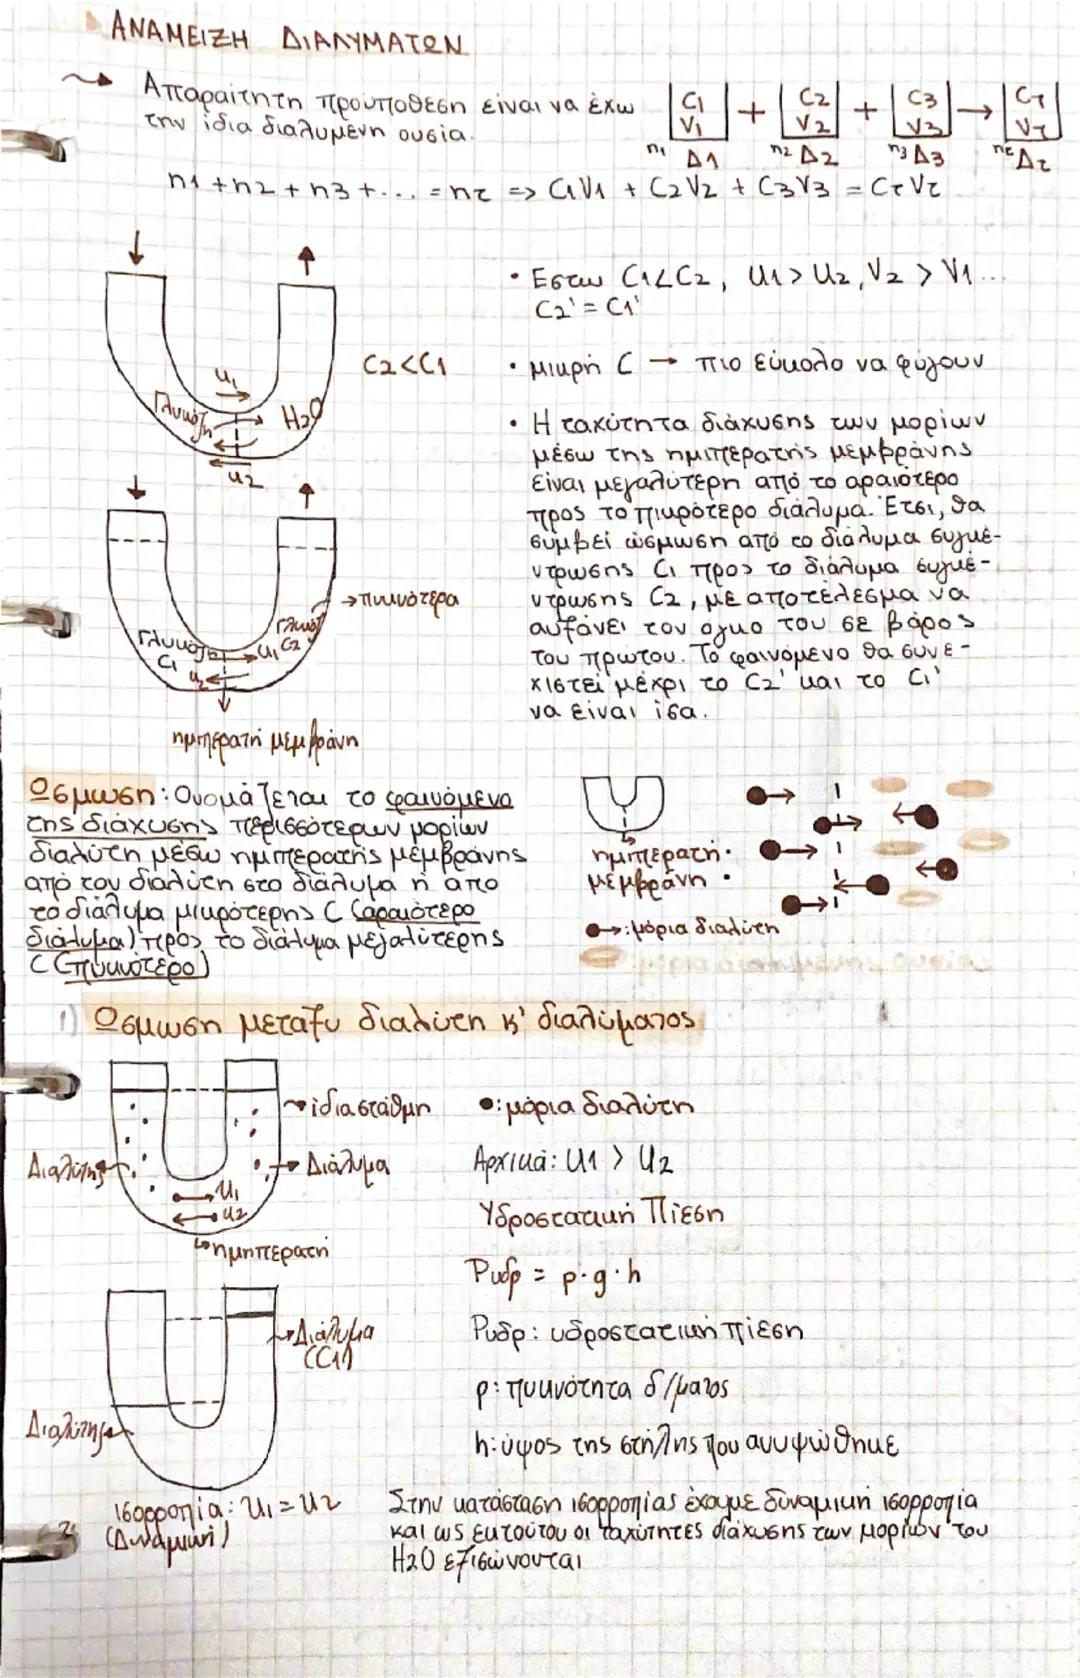 ΑΝΑΜΕΙΞΗ ΔΙΑΛΥΜΑΤΩΝ
Απαραίτητη προϋπόθεση είναι να έχω
την ίδια διαλυμένη ουσία.
C1 + C2 + C3 → Cτ
V1 V2 V3 Vτ
n1 Δ1 n2 Δ2 n3 Δ3 nτ Δτ
n1 + n2 + n3 + ... = nτ => C1V1 + C2V2 + C3V3 = CτVτ
• Εστω C1<C2, U1>U2, V2 > V1...
C2' = C1'
C2<C1
• μικρή C → πιο εύκολο να φύγουν
U1
Γλυκόζη
H2O
U2
• Η ταχύτητα διάχυσης των μορίων
μέσω της ημιπερατής μεμβράνης
είναι μεγαλύτερη από το αραιότερο
προς το πικρότερο διάλυμα. Έτσι, θα
συμβεί ώσμωση από το διάλυμα συγκέ-
ντρωσης C1 προς το διάλυμα συγκέ-
ντρωσης C2, με αποτέλεσμα να
αυξάνει τον ογκο του σε βάρος
του πρώτου. Το φαινόμενο θα συνε-
χιστεί μέχρι το C2' και το C1'
να είναι ίσα.
→πυκνότερα
Γλυκόζη
C1
U1
U2
Γλυκόζ
C2
ημιπερατή μεμβράνη
Ωσμωση: Ονομάζεται το φαινόμενο
της διάχυσης περισσότερων μορίων
διαλύτη μέσω ημιπερατής μεμβράνης
από τον διαλύτη στο διάλυμα ή από
το διάλυμα μικρότερης C (αραιότερο
διάλυμα) προς το διάλυμα μεγαλύτερης
C (πυκνότερο)
ημιπερατή
μεμβράνη
●→: μόρια διαλύτη
1) Ωσμωση μεταξυ διαλύτη κ' διαλύματος
→ίδια στάθμη
Διαλύτης
→ Διάλυμα
U1
U2
ημηπερατή
●: μόρια διαλύτη
Αρχικά: U1 > U2
Υδροστατική Πίεση
Pυδρ = ρ·g·h
Pυδρ: υδροστατική πίεση
ρ: πυκνότητα δ/ματος
h: ύψος της στήλης που ανυψώθηκε
→Διάλυμα
(C1)
Διαλύτης
ισορροπία: U1 = U2
(Δυναμική)
Στην κατάσταση ισορροπίας έχουμε δυναμική ισορροπία
και ως εκ τούτου οι ταχύτητες διάχυσης των μορίων του
H2O εξισώνονται